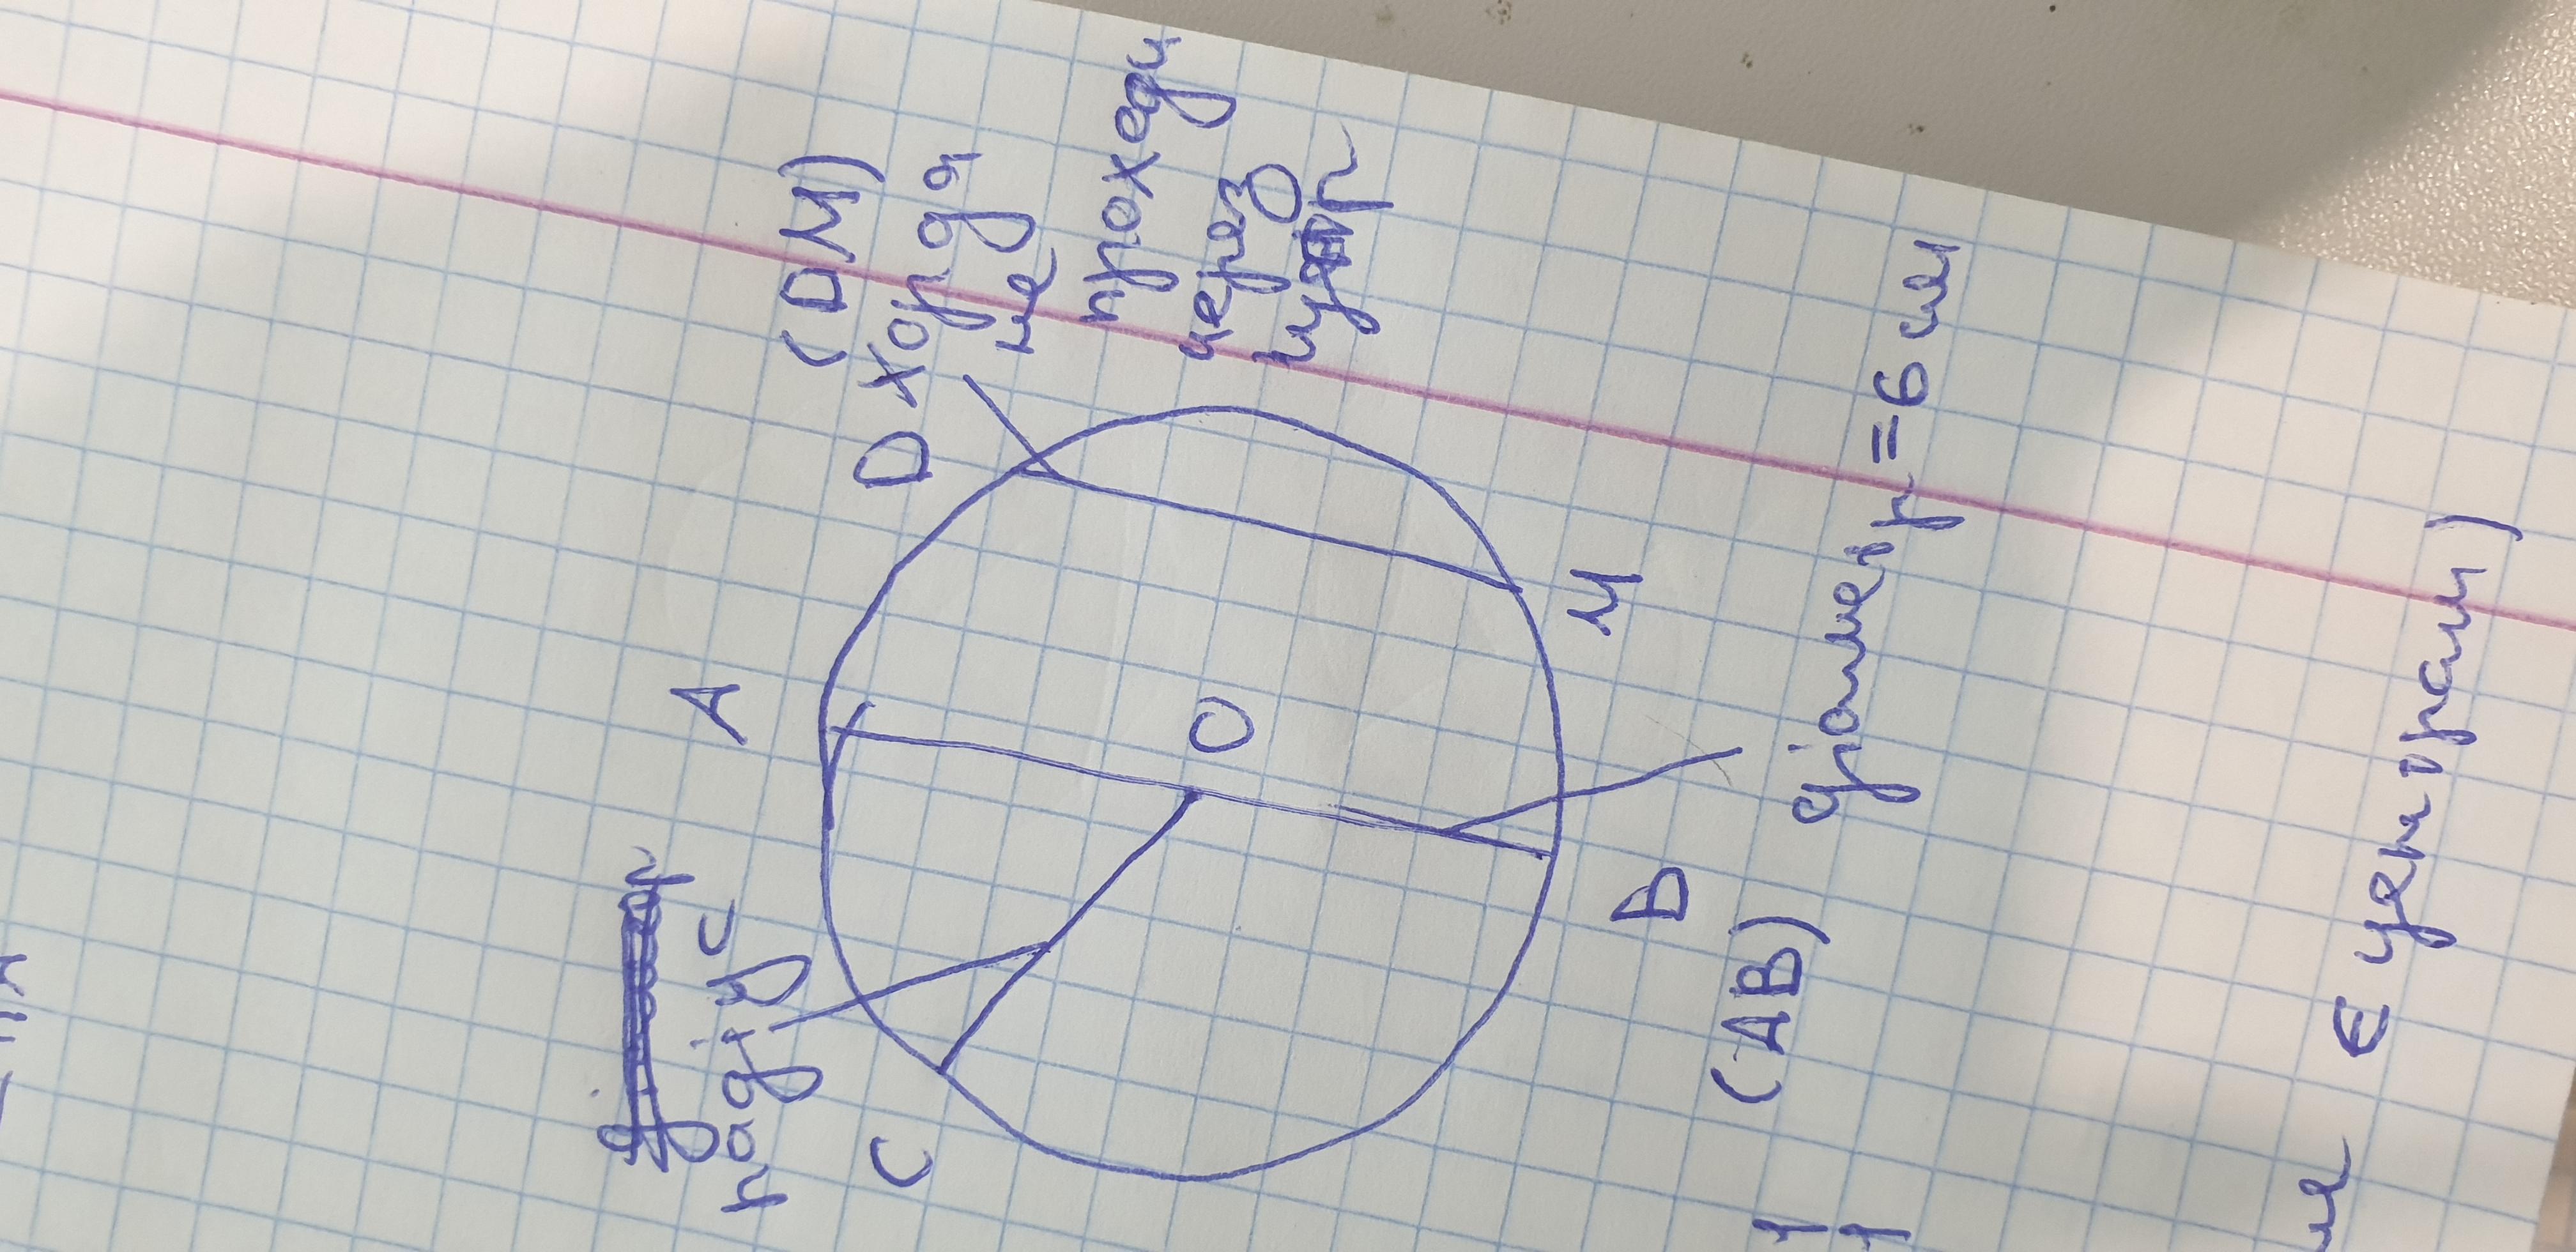 (DM)
хорда
не
проходи
через
центр
D
A
радіус
C
O
M
B
(AB) діаметр = 6 см
є центром)